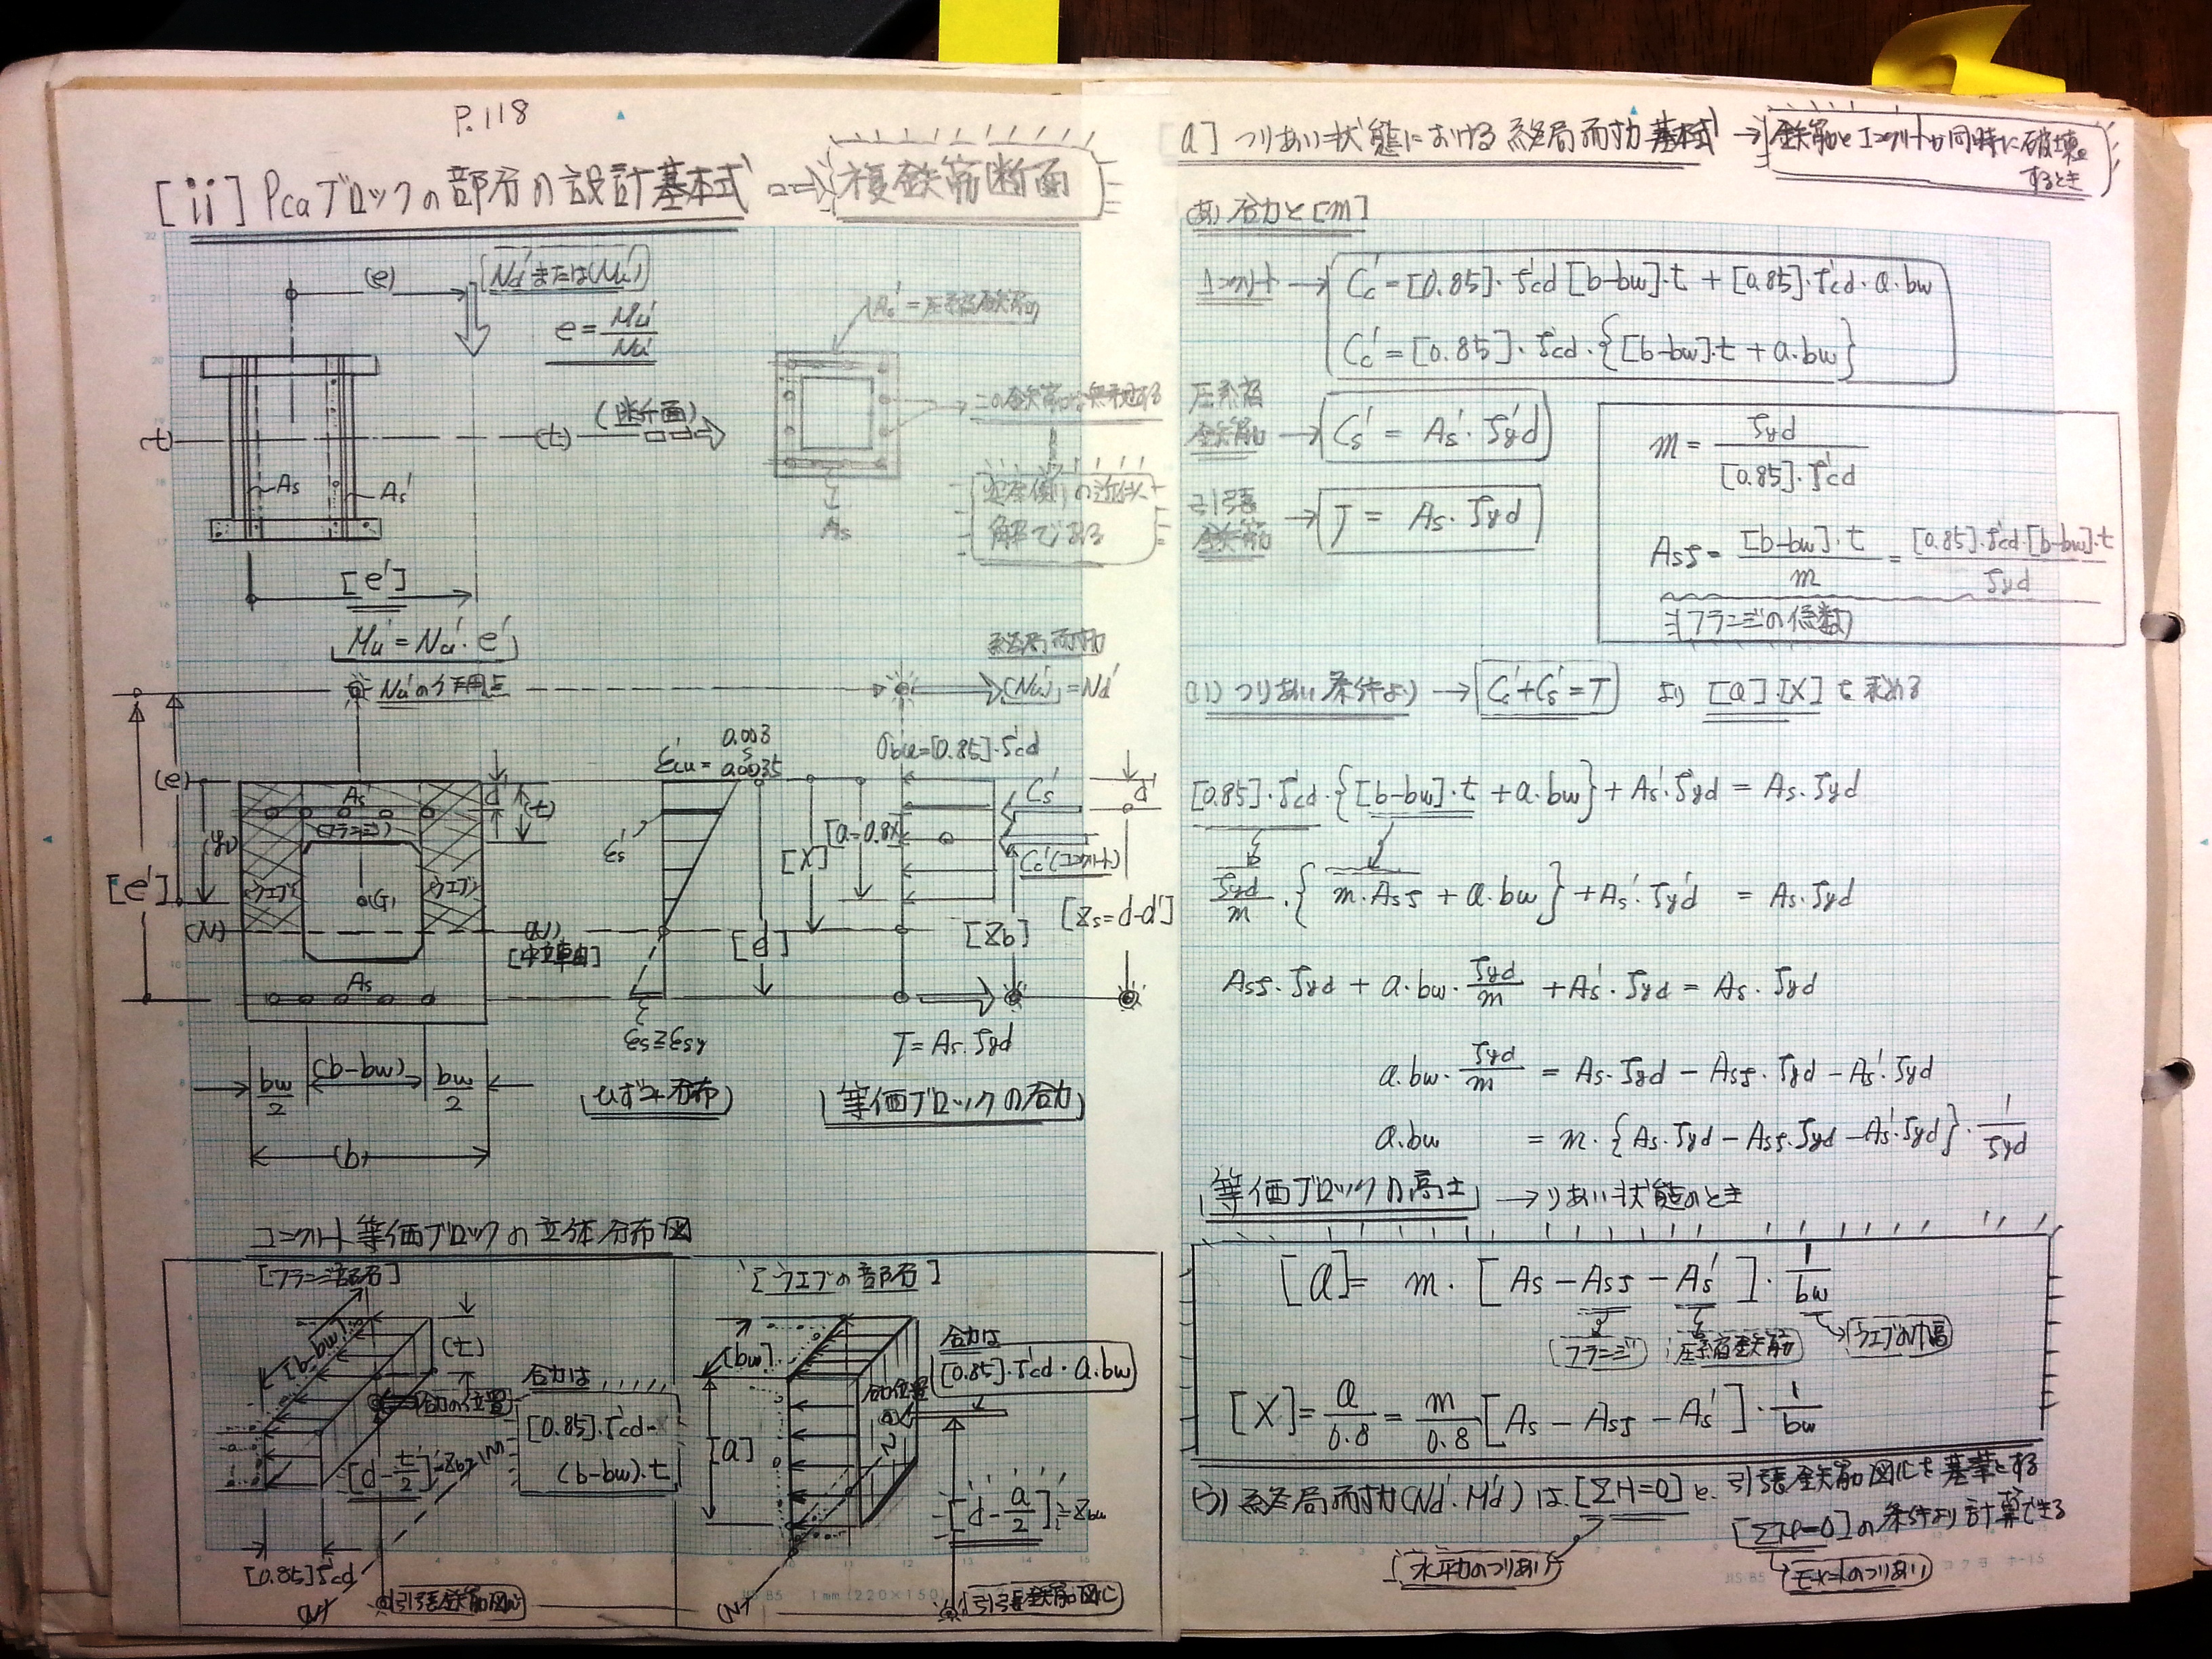 P.118
[ii] Pcaブロックの部分の設計基本式 ⇒ 複鉄筋断面
(e)
Nd'または(Nu')
e = Mu'/Nu'
As' = 圧縮鉄筋
(t)
(t)
(断面)
この鉄筋は無視する
安全側の近似
解である
As
As'
As
[e']
Mu' = Nu'・e'
Nu'の作用点
終局耐力
(Nu') = Nd'
0.003
εcu' = 0.0035
σbu = [0.85]・f'cd
(e)
As'
(フランジ)
d'
(t)
Cs'
d'
(y)
εs'
[X]
[a=0.8X]
Cc'(コンクリート)
[e']
ウエブ
(G)
ウエブ
(N)
(N)
[中立軸]
[d]
[Zb]
[Zs=d-d']
As
εs≧εsy
T = As・fyd
bw/2
(b-bw)
bw/2
ひずみ分布
等価ブロックの合力
(b)
コンクリート等価ブロックの立体分布図
[フランジ部分]
[ウエブの部分]
[b-bw]
(t)
合力の位置
合力は
[0.85]・f'cd・
(b-bw)・t
[d-t/2]=Zbf
[0.85]f'cd
(N)
引張鉄筋図心
[bw]
合力は
[0.85]・f'cd・a・bw
合力位置
[a]
[d-a/2]=Zbw
(N)
引張鉄筋図心
[a] つりあい状態における終局耐力基本式 → 鉄筋とコンクリートが同時に破壊
するとき
(あ) 合力と[m]
コンクリート → Cc' = [0.85]・f'cd[b-bw]・t + [0.85]・f'cd・a・bw
Cc' = [0.85]・f'cd・{[b-bw]・t + a・bw}
圧縮
鉄筋 → Cs' = As'・f'yd
引張
鉄筋 → T = As・fyd
m = fyd/[0.85]・f'cd
Asf = [b-bw]・t/m = [0.85]・f'cd・[b-bw]・t/fyd
(フランジの係数)
(い) つりあい条件より → Cc'+Cs'=T より [a][X]を求める
[0.85]・f'cd・{[b-bw]・t + a・bw} + As'・f'yd = As・fyd
fyd/m・{m・Asf + a・bw} + As'・f'yd = As・fyd
Asf・fyd + a・bw・fyd/m + As'・fyd = As・fyd
a・bw・fyd/m = As・fyd - Asf・fyd - As'・fyd
a・bw = m・{As・fyd - Asf・fyd - As'・fyd}・1/fyd
等価ブロックの高さ → つりあい状態のとき
[a] = m・[As - Asf - As']・1/bw
フランジ
圧縮鉄筋
ウエブの幅
[X] = a/0.8 = m/0.8[As - Asf - As']・1/bw
(う) 終局耐力(Nd'・M'd)は、[ΣH=0]と、引張鉄筋図心を基準とする
[ΣM=0]の条件より計算できる
水平力のつりあい
モーメントのつりあい
JIS B5 1mm(220×150)
JIS B5
コクヨ ホ-15